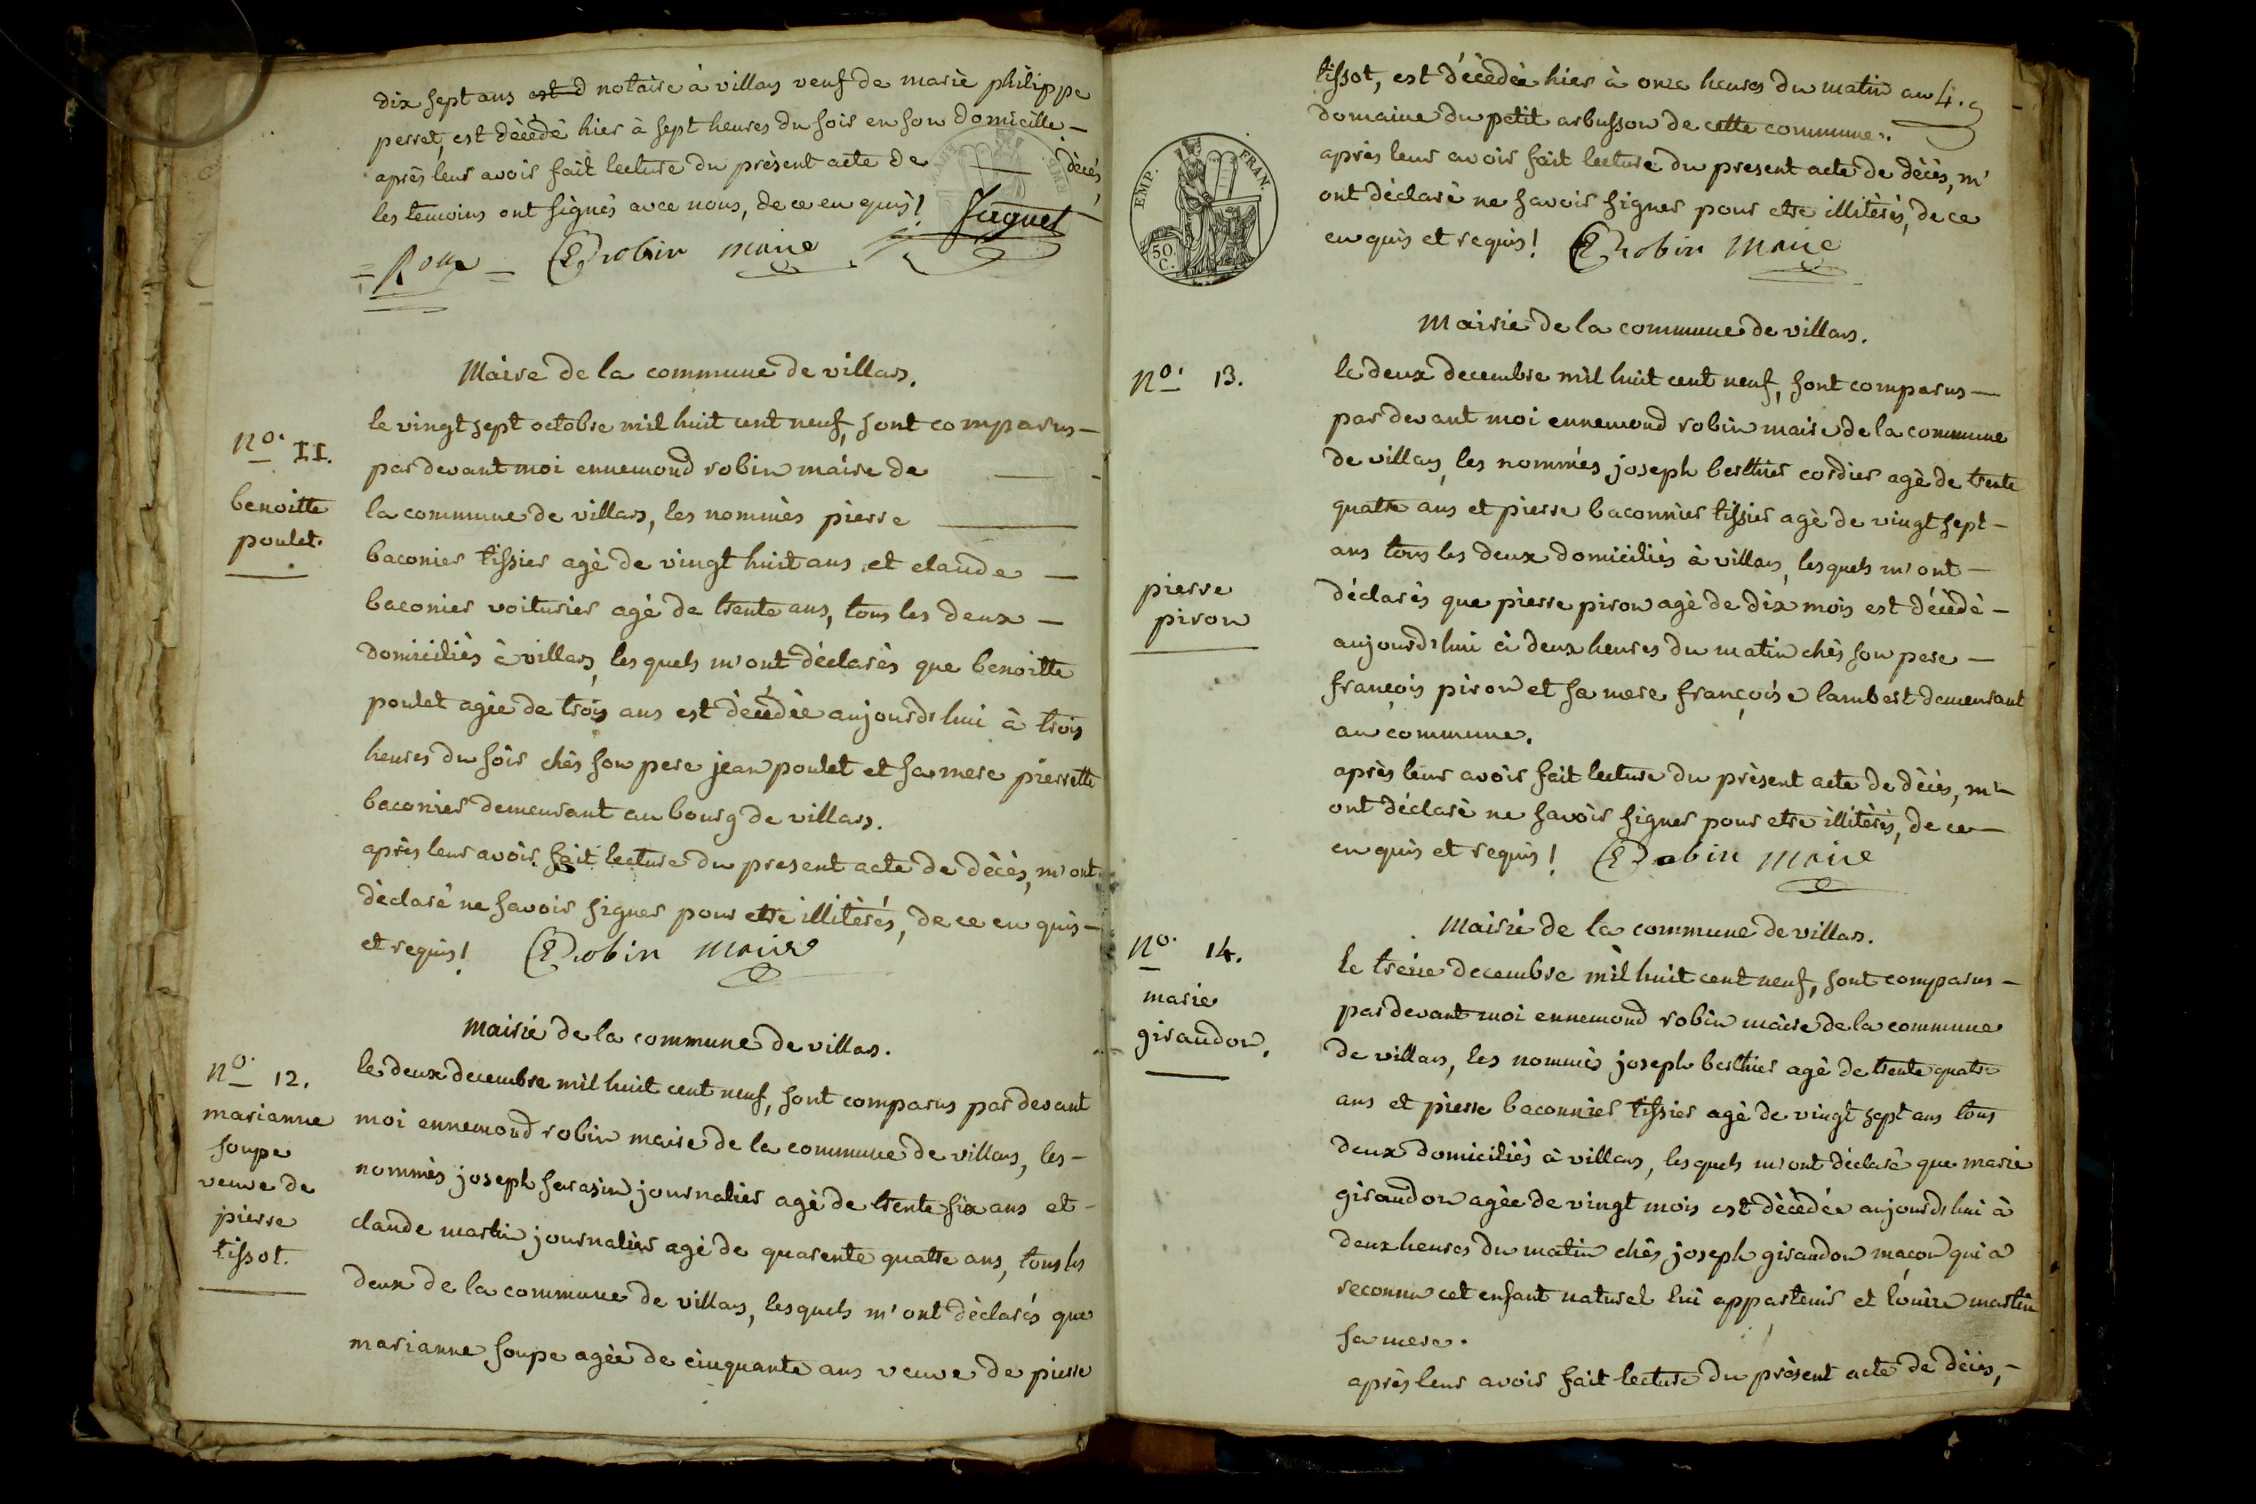 dix sept ans est d notaire à villars veuf de marie philippe
perret, est décèdé hier à sept heures du soir en son domicille —
après leur avoir fait lecture du prèsent acte de — dècès,
les temoins ont signés avec nous, de ce en quis!
Juguet
E Robin maire
Mairie de la commune de villars.
no. II.
benoitte
poulet.
le vingt sept octobre mil huit cent neuf, sont comparus —
par devant moi ennemond robin maire de —
la commune de villars, les nommès pierre —
baconier tissier agè de vingt huit ans, et claude —
baconier voiturier agè de trente ans, tous les deux —
domiciliès à villars, les quels m'ont dèclarès que benoitte
poulet agèe de trois ans est dècèdèe aujourd'hui à trois
heures du soir chès son pere jean poulet et sa mere pierrette
baconier demeurant au bourg de villars.
après leur avoir fait lecture du present acte de dècès, m'ont
dèclaré ne savoir signer pour etre illitèrés, de ce en quis —
et requis! E Robin maire
Mairie de la commune de villars.
no. 12.
marianne
soupe
veuve de
pierre
tissot.
le deux decembre mil huit cent neuf, sont comparus par devant
moi ennemond robin maire de la commune de villars, les —
nommès joseph sarasin journalier agè de trente six ans et —
claude martin journalier agè de quarente quatre ans, tous les
deux de la commune de villars, lesquels m'ont dèclarés que
marianne soupe agèe de cinquante ans veuve de pierre
EMP. FRAN.
50.
C.
tissot, est dècèdèe hier à onze heures du matin au 4. 9
domaine du petit arbusson de cette commune.
après leur avoir fait lecture du present acte de dècès, m'
ont dèclarè ne savoir signer pour etre illitèrès, de ce
en quis et requis! E Robin maire
Mairie de la commune de villars.
no. 13.
pierre
piron
le deux decembre mil huit cent neuf, sont comparus —
par devant moi ennemond robin maire de la commune
de villars, les nommès joseph berthier cordier agè de trente
quatre ans et pierre baconnier tissier agè de vingt sept —
ans tous les deux domiciliès à villars, lesquels m'ont —
dèclarès que pierre piron agè de dix mois est dècèdè —
aujourd'hui à deux heures du matin chès son pere —
françois piron et sa mere françoise lambert demeurant
au commune.
après leur avoir fait lecture du prèsent acte de dècès, m' —
ont dèclarè ne savoir signer pour etre illitèrès, de ce —
en quis et requis! E Robin maire
Mairie de la commune de villars.
no. 14.
marie
giraudon.
le treize decembre mil huit cent neuf, sont comparus —
par devant moi ennemond robin maire de la commune
de villars, les nommès joseph berthier agè de trente quatre
ans et pierre baconnier tissier agè de vingt sept ans tous
deux domiciliès à villars, lesquels m'ont dèclarè que marie
giraudon agèe de vingt mois est dècèdèe aujourd'hui à
deux heures du matin chès joseph giraudon maçon qui a
reconnu cet enfant naturel lui appartenir et louise martin
sa mere.
après leur avoir fait lecture du prèsent acte de dècès, —